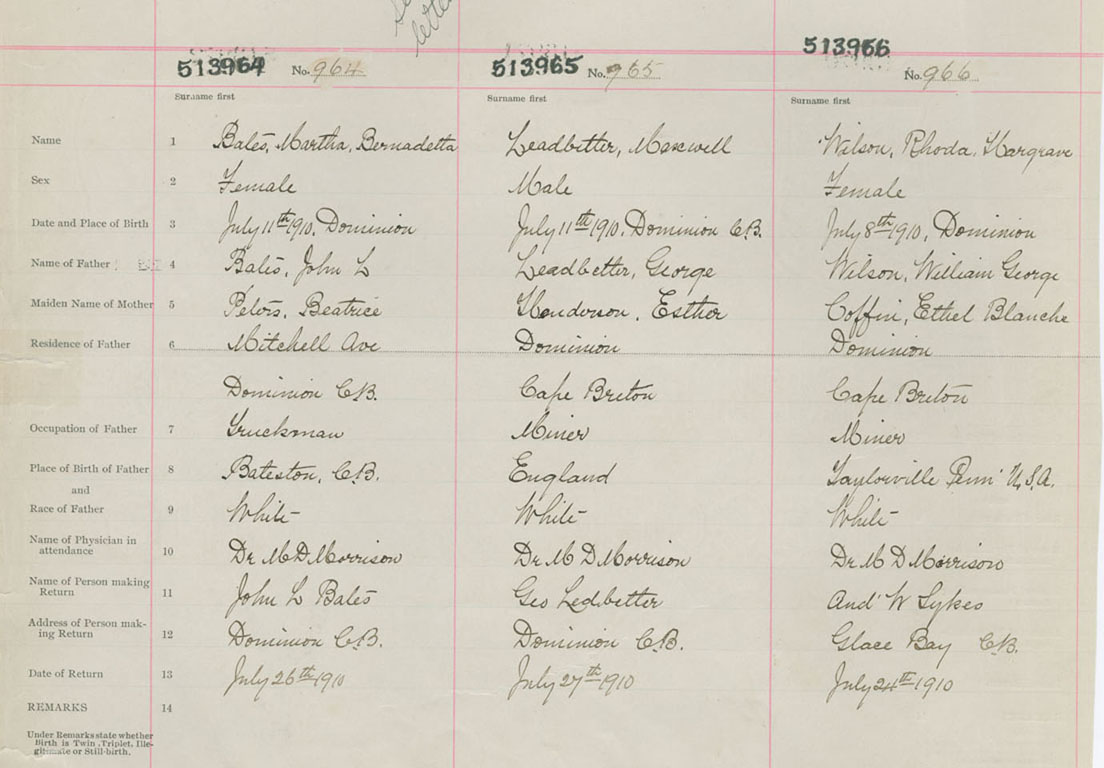 513964 No. 964 513965 No. 965 513966 No. 966
Surname first Surname first Surname first
Name 1 Bates, Martha, Bernadetta Leadbetter, Maxwell Wilson, Rhoda, Hargrave
Sex 2 Female Male Female
Date and Place of Birth 3 July 11th 1910. Dominion July 11th 1910. Dominion C.B. July 8th 1910, Dominion
Name of Father 4 Bates, John L Leadbetter, George Wilson, William George
Maiden Name of Mother 5 Peters, Beatrice Henderson, Esther Coffin, Ethel Blanche
Residence of Father 6 Mitchell Ave Dominion Dominion
Dominion C.B. Cape Breton Cape Breton
Occupation of Father 7 Truckman Miner Miner
Place of Birth of Father 8 Bateston, C.B. England Taylorville Penn U.S.A.
and
Race of Father 9 White White White
Name of Physician in
attendance 10 Dr M D Morrison Dr M D Morrison Dr M D Morrison
Name of Person making
Return 11 John L Bates Geo Ledbetter And W Sykes
Address of Person mak-
ing Return 12 Dominion C.B. Dominion C.B. Glace Bay C.B.
Date of Return 13 July 26th 1910 July 27th 1910 July 24th 1910
REMARKS 14
Under Remarks state whether
Birth is Twin, Triplet, Ille-
gitimate or Still-birth.